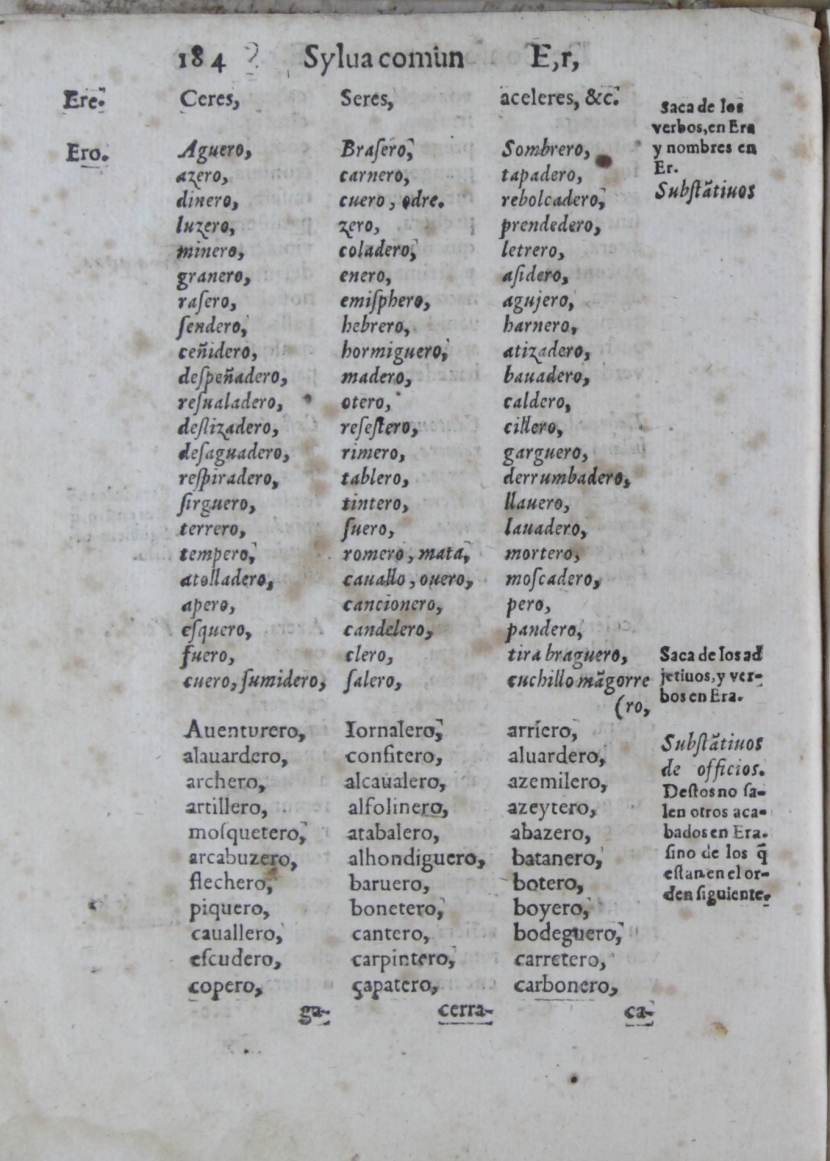 184 Sylua comun E,r,
Ere. Ceres, Seres, aceleres, &c.
Saca de los
verbos, en Era
y nombres en
Er.
Substãtiuos
Ero. Aguero, Braſero, Sombrero,
azero, carnero, tapadero,
dinero, cuero, odre. rebolcadero,
luzero, zero, prendedero,
minero, coladero, letrero,
granero, enero, aſidero,
raſero, emiſphero, agujero,
ſendero, hebrero, harnero,
ceñidero, hormiguero, atizadero,
deſpeñadero, madero, bauadero,
reſualadero, otero, caldero,
deſlizadero, reſeſtero, cillero,
deſaguadero, rimero, garguero,
reſpiradero, tablero, derrumbadero,
ſirguero, tintero, llauero,
terrero, ſuero, lauadero,
tempero, romero, mata, mortero,
atolladero, cauallo, ouero, moſcadero,
apero, cancionero, pero,
eſquero, candelero, pandero,
fuero, clero, tira braguero,
cuero, ſumidero, ſalero, cuchillo mãgorre
(ro,
Saca de los ad
jetiuos, y ver-
bos en Era.
Auenturero, Iornalero, arriero,
alauardero, confitero, aluardero,
archero, alcaualero, azemilero,
artillero, alfolinero, azeytero,
moſquetero, atabalero, abazero,
arcabuzero, alhondiguero, batanero,
flechero, baruero, botero,
piquero, bonetero, boyero,
cauallero, cantero, bodeguero,
eſcudero, carpintero, carretero,
copero, çapatero, carbonero,
Subſtãtiuos
de officios.
Deſtos no ſa-
len otros aca-
bados en Era.
ſino de los q̃
eſtan en el or-
den ſiguiente.
ga- cerra- ca-